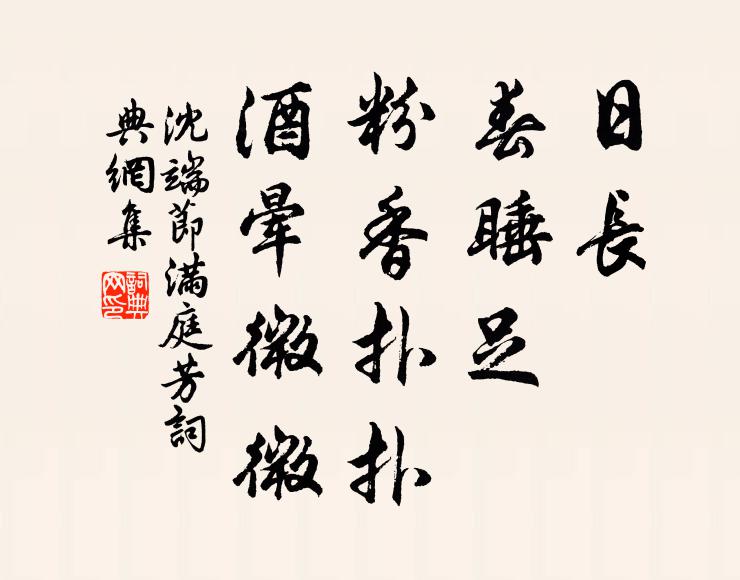 日長
春睡足
粉香扑扑
酒暈微微
沈端節滿庭芳詞
典網集
詞典
网印